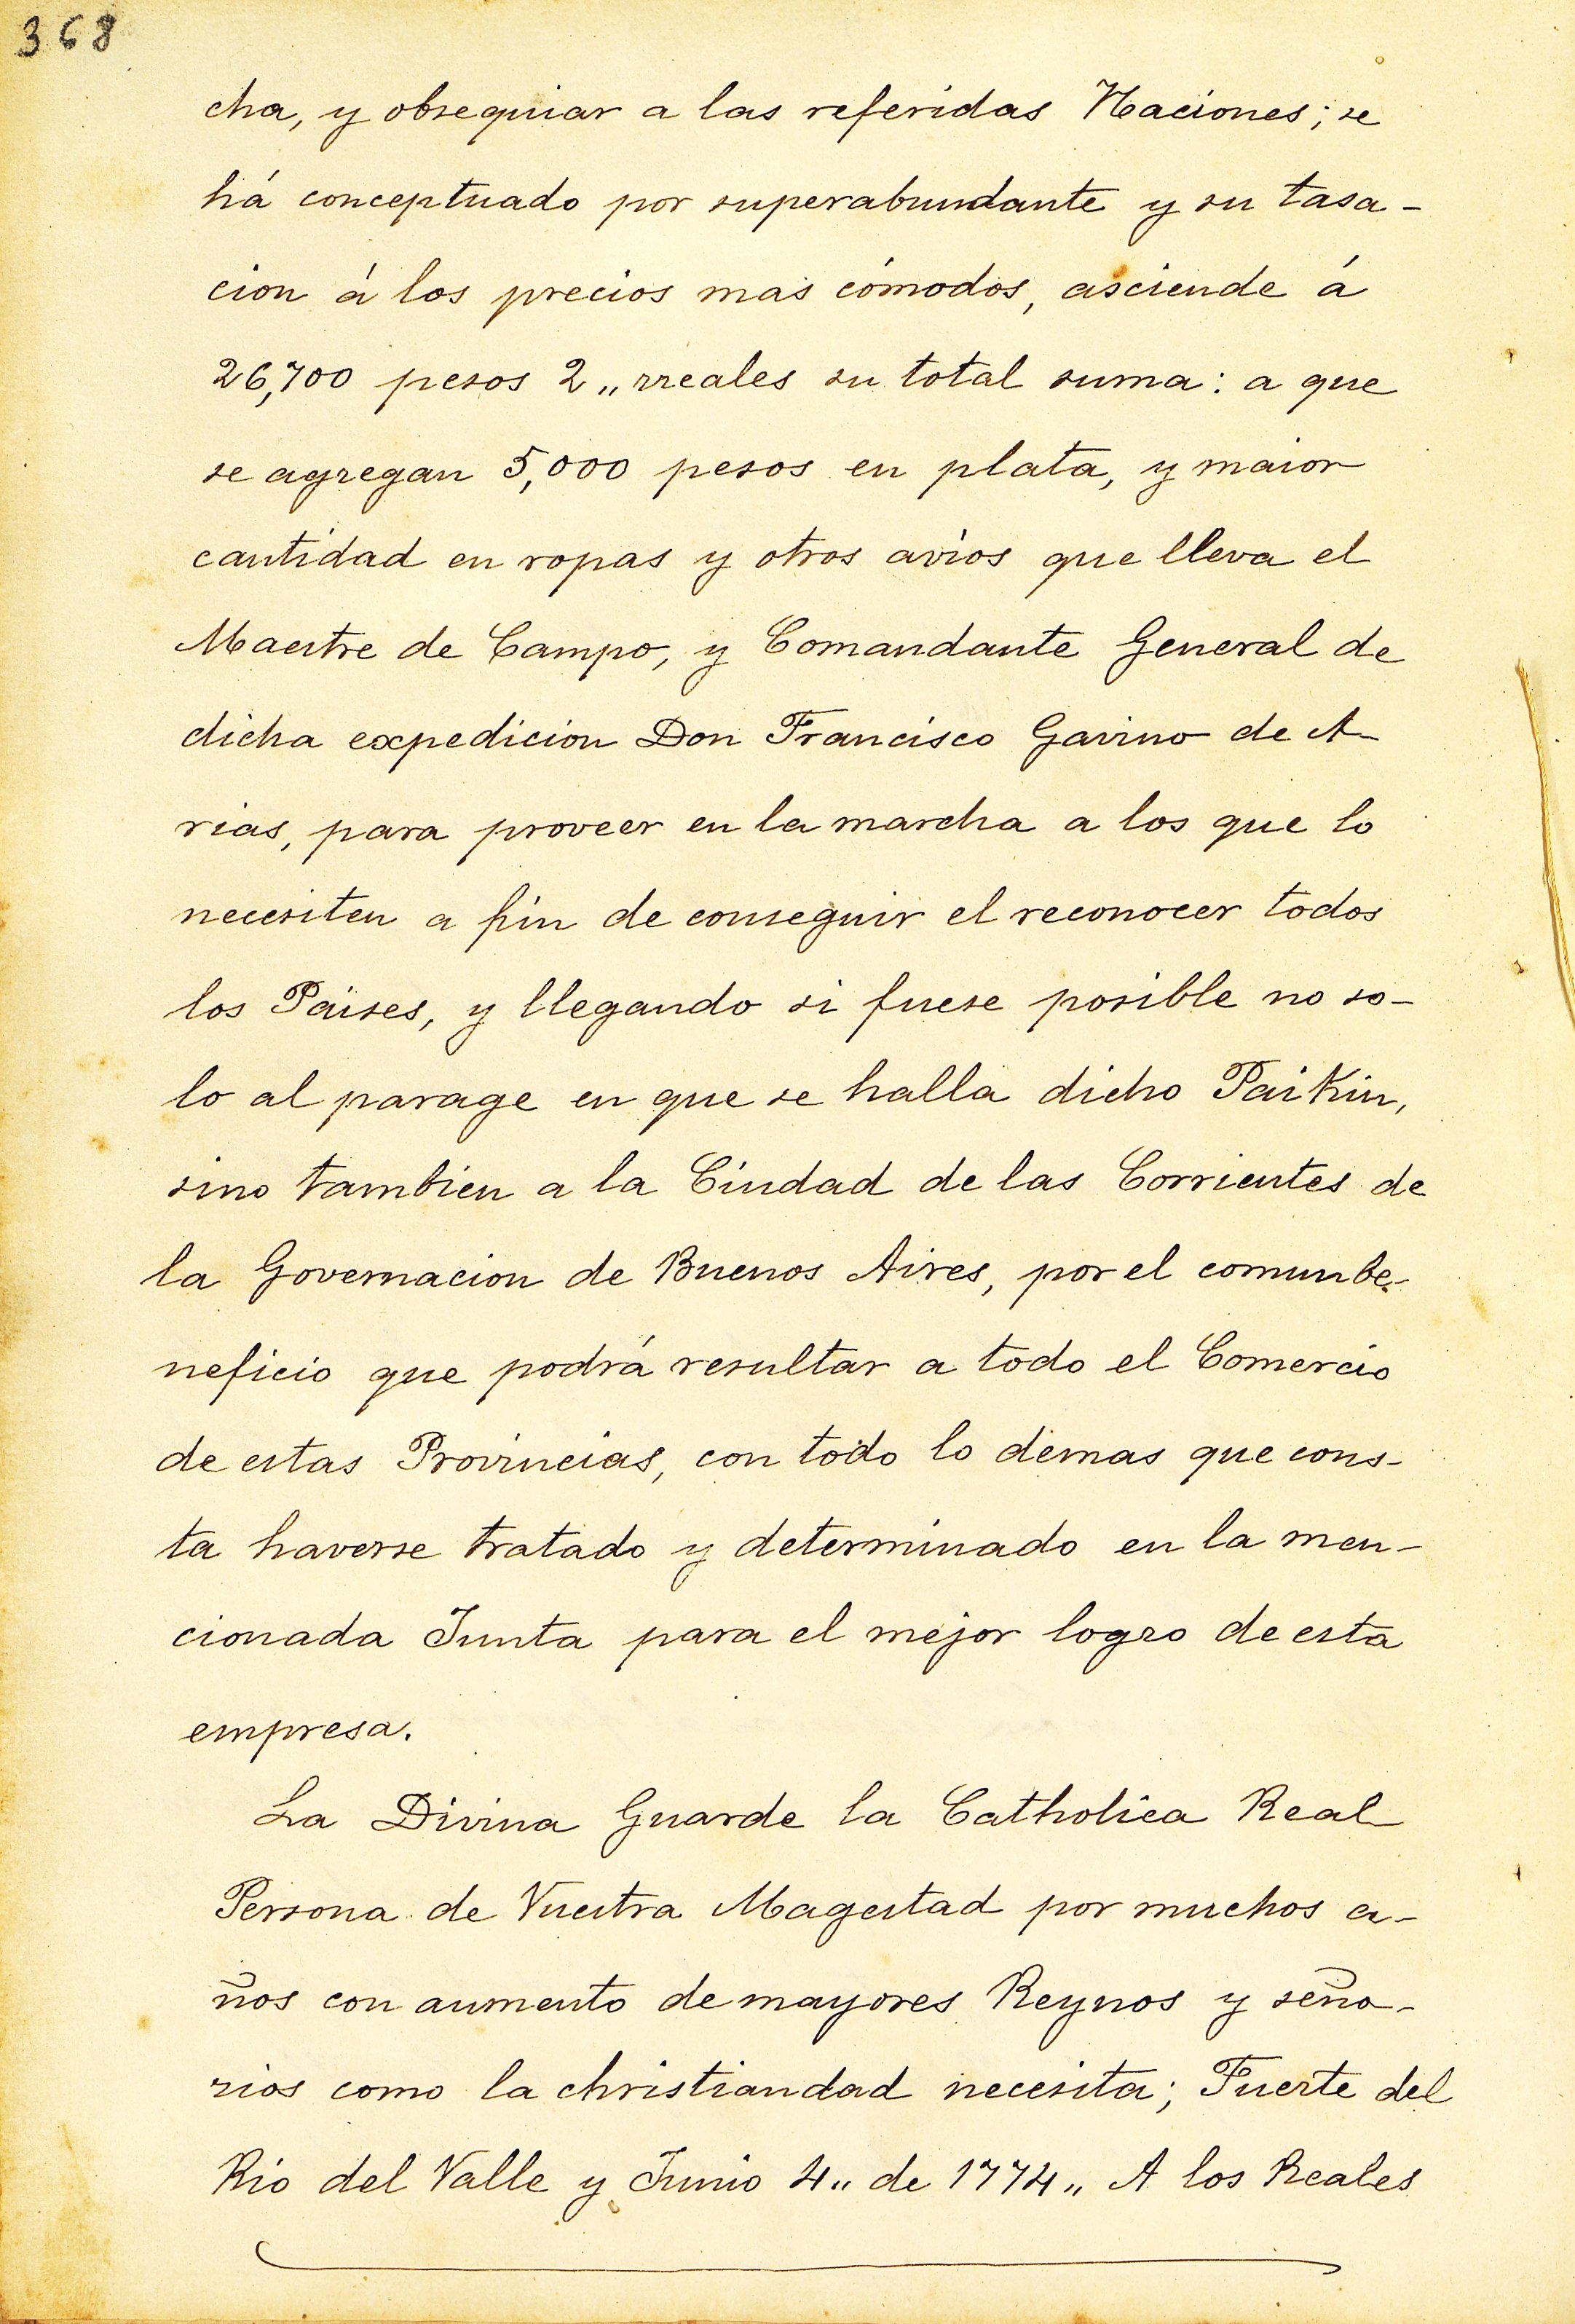 368
cha, y obsequiar a las referidas Naciones; se
há conceptuado por superabundante y su tasa-
cion á los precios mas cómodos, asciende á
26,700 pesos 2,, rreales su total suma: a que
se agregan 5,000 pesos en plata, y maior
cantidad en ropas y otros avios que lleva el
Maestre de Campo, y Comandante General de
dicha expedicion Don Francisco Gavino de A-
rias, para proveer en la marcha a los que lo
necesiten a fin de conseguir el reconocer todos
los Paises, y llegando si fuese posible no so-
lo al parage en que se halla dicho Paikin,
sino tambien a la Ciudad de las Corrientes de
la Governacion de Buenos Aires, por el comun be-
neficio que podrá resultar a todo el Comercio
de estas Provincias, con todo lo demas que cons-
ta haverse tratado y determinado en la men-
cionada Junta para el mejor logro de esta
empresa.
La Divina Guarde la Catholica Real
Persona de Vuestra Magestad por muchos a-
ños con aumento de mayores Reynos y seño-
rios como la christiandad necesita; Fuerte del
Rio del Valle y Junio 4,, de 1774,, A los Reales